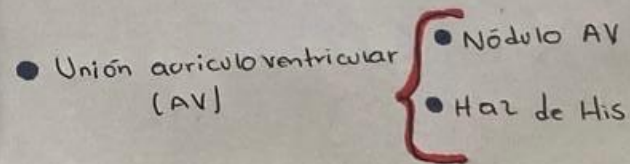 ● Unión auriculoventricular
(AV)
● Nódulo AV
● Haz de His